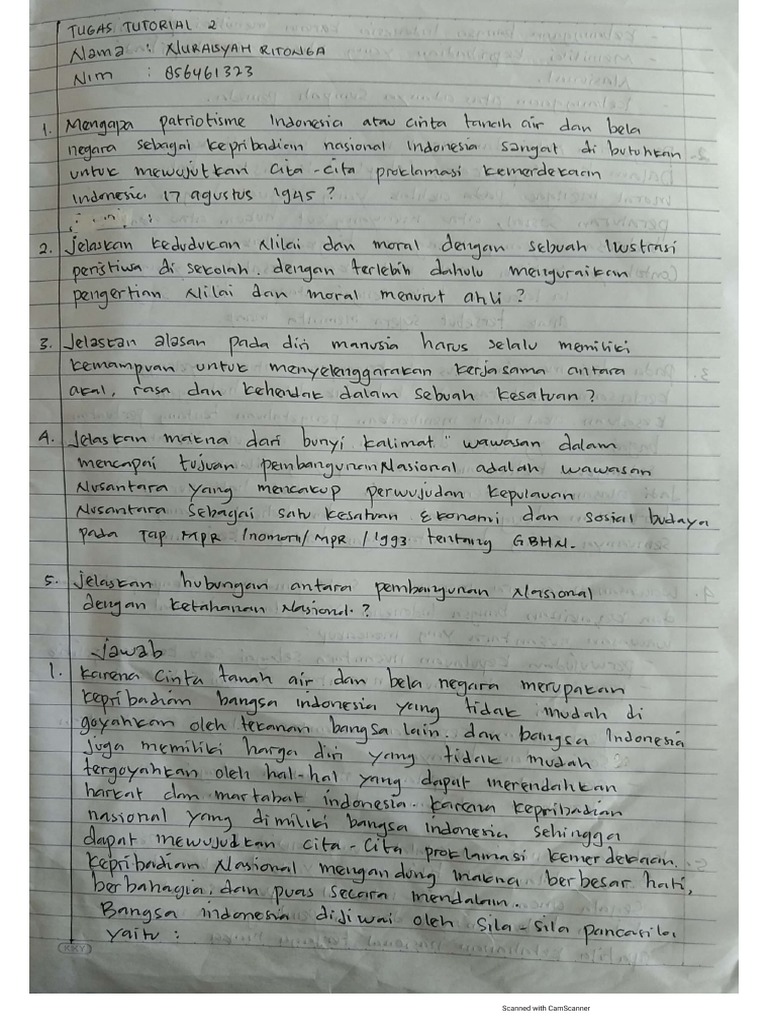 TUGAS TUTORIAL 2
Nama : NURAISYAH RITONGA
Nim : 856461323
1. Mengapa patriotisme Indonesia atau cinta tanah air dan bela
negara sebagai kepribadian nasional Indonesia sangat di butuhkan
untuk mewujutkan cita-cita proklamasi kemerdekaan
Indonesia 17 agustus 1945 ?
2. Jelaskan kedudukan Nilai dan moral dengan sebuah Ilustrasi
peristiwa di sekolah. dengan terlebih dahulu menguraikan
pengertian Nilai dan moral menurut ahli ?
3. Jelaskan alasan pada diri manusia harus selalu memiliki
kemampuan untuk menyelenggarakan kerjasama antara
akal, rasa dan kehendak dalam sebuah kesatuan ?
4. Jelaskan makna dari bunyi kalimat " wawasan dalam
mencapai tujuan pembangunan Nasional adalah wawasan
Nusantara yang mencakup perwujudan kepulauan
Nusantara sebagai satu kesatuan Ekonomi dan sosial budaya
pada Tap MPR /nomor11/MPR /1993 tentang GBHN.
5. Jelaskan hubungan antara pembangunan Nasional
dengan ketahanan Nasional. ?
Jawab
1. karena cinta tanah air dan bela negara merupakan
kepribadian bangsa indonesia yang tidak mudah di
goyahkan oleh tekanan bangsa lain. dan bangsa Indonesia
juga memiliki harga diri yang tidak mudah
tergoyahkan oleh hal-hal yang dapat merendahkan
harkat dan martabat indonesia. karena kepribadian
nasional yang dimiliki bangsa indonesia sehingga
dapat mewujudkan cita-cita proklamasi kemerdekaan.
kepribadian Nasional mengandung makna berbesar hati,
berbahagia, dan puas secara mendalam.
Bangsa indonesia dijiwai oleh sila-sila pancasila
yaitu :
KKY
Scanned with CamScanner